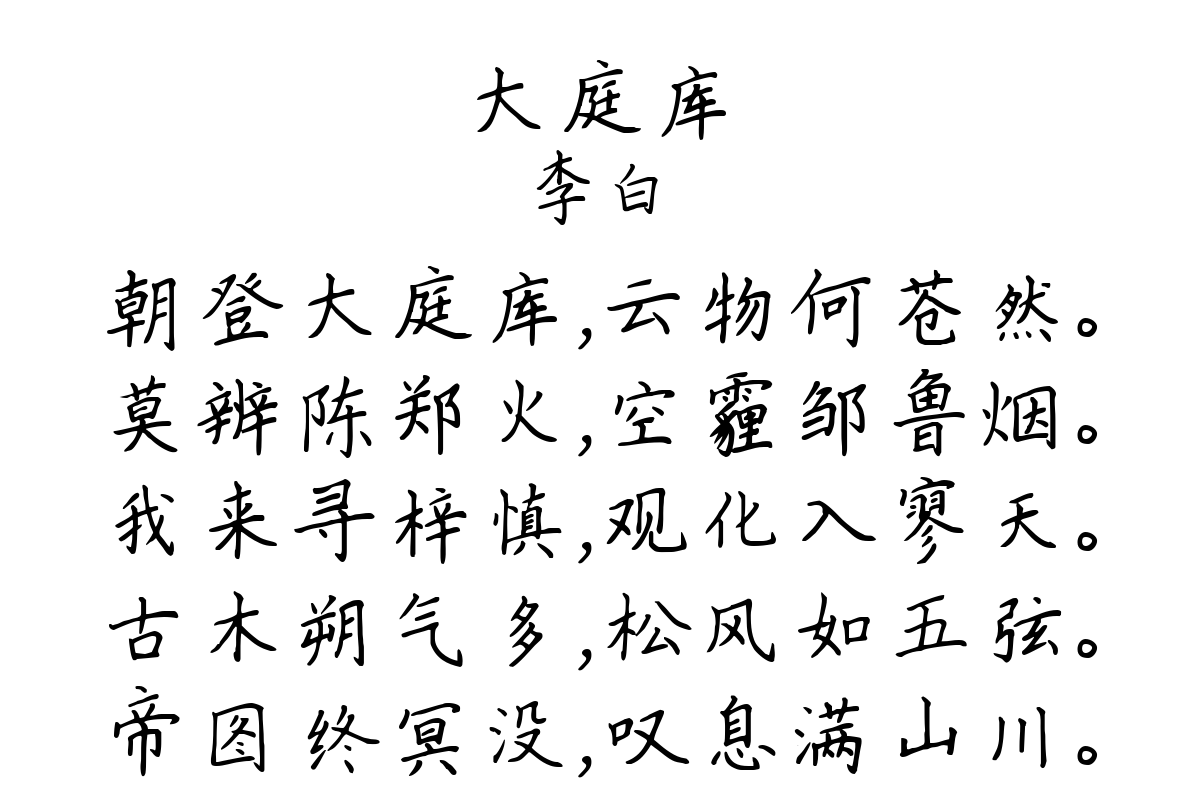 大庭库
李白
朝登大庭库,云物何苍然。
莫辨陈郑火,空霾邹鲁烟。
我来寻梓慎,观化入寥天。
古木朔气多,松风如五弦。
帝图终冥没,叹息满山川。